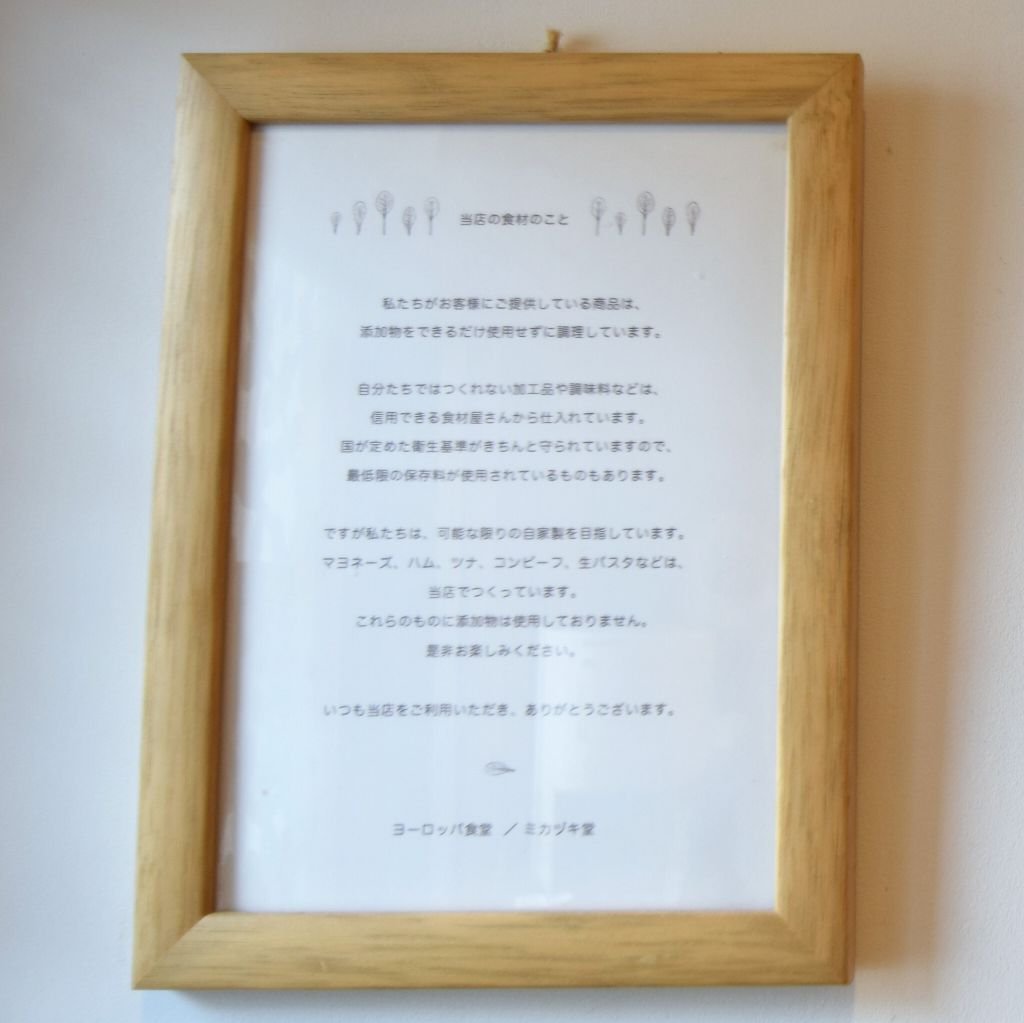 当店の食材のこと
私たちがお客様にご提供している商品は、
添加物をできるだけ使用せずに調理しています。
自分たちではつくれない加工品や調味料などは、
信用できる食材屋さんから仕入れています。
国が定めた衛生基準がきちんと守られていますので、
最低限の保存料が使用されているものもあります。
ですが私たちは、可能な限りの自家製を目指しています。
マヨネーズ、ハム、ツナ、コンビーフ、生パスタなどは、
当店でつくっています。
これらのものに添加物は使用しておりません。
是非お楽しみください。
いつも当店をご利用いただき、ありがとうございます。
ヨーロッパ食堂 ／ ミカヅキ堂